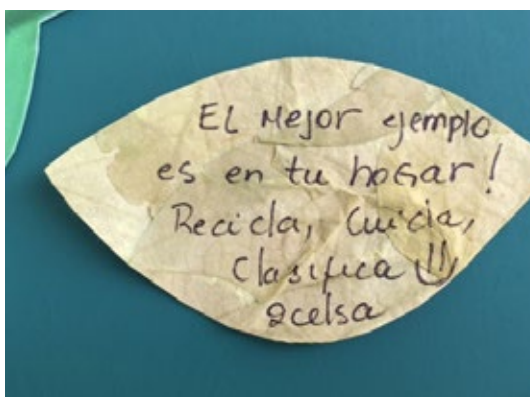 EL Mejor ejemplo
es en tu hogar!
Recicla, Cuida,
Clasifica